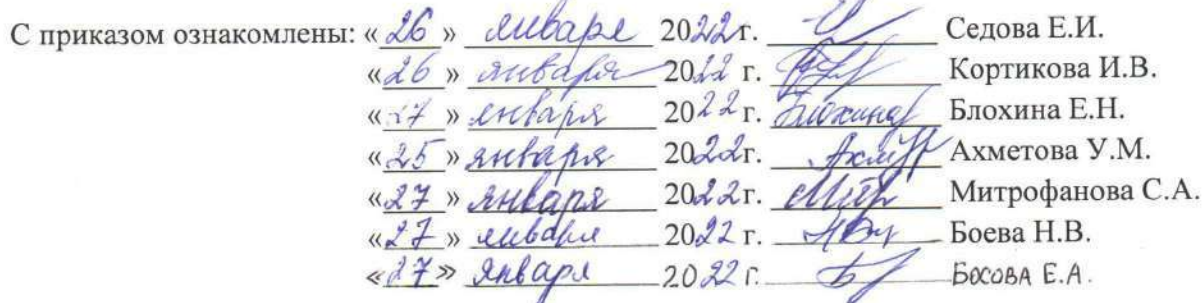 С приказом ознакомлены: «26» января 2022г. Седова Е.И.
«26» января 2022 г. Кортикова И.В.
«27» января 2022 г. Блохина Блохина Е.Н.
«25» января 2022г. Ахметова У.М.
«27» января 2022 г. Митрофанова С.А.
«27» января 2022 г. Боева Н.В.
«27» января 2022 г. Босова Е.А.